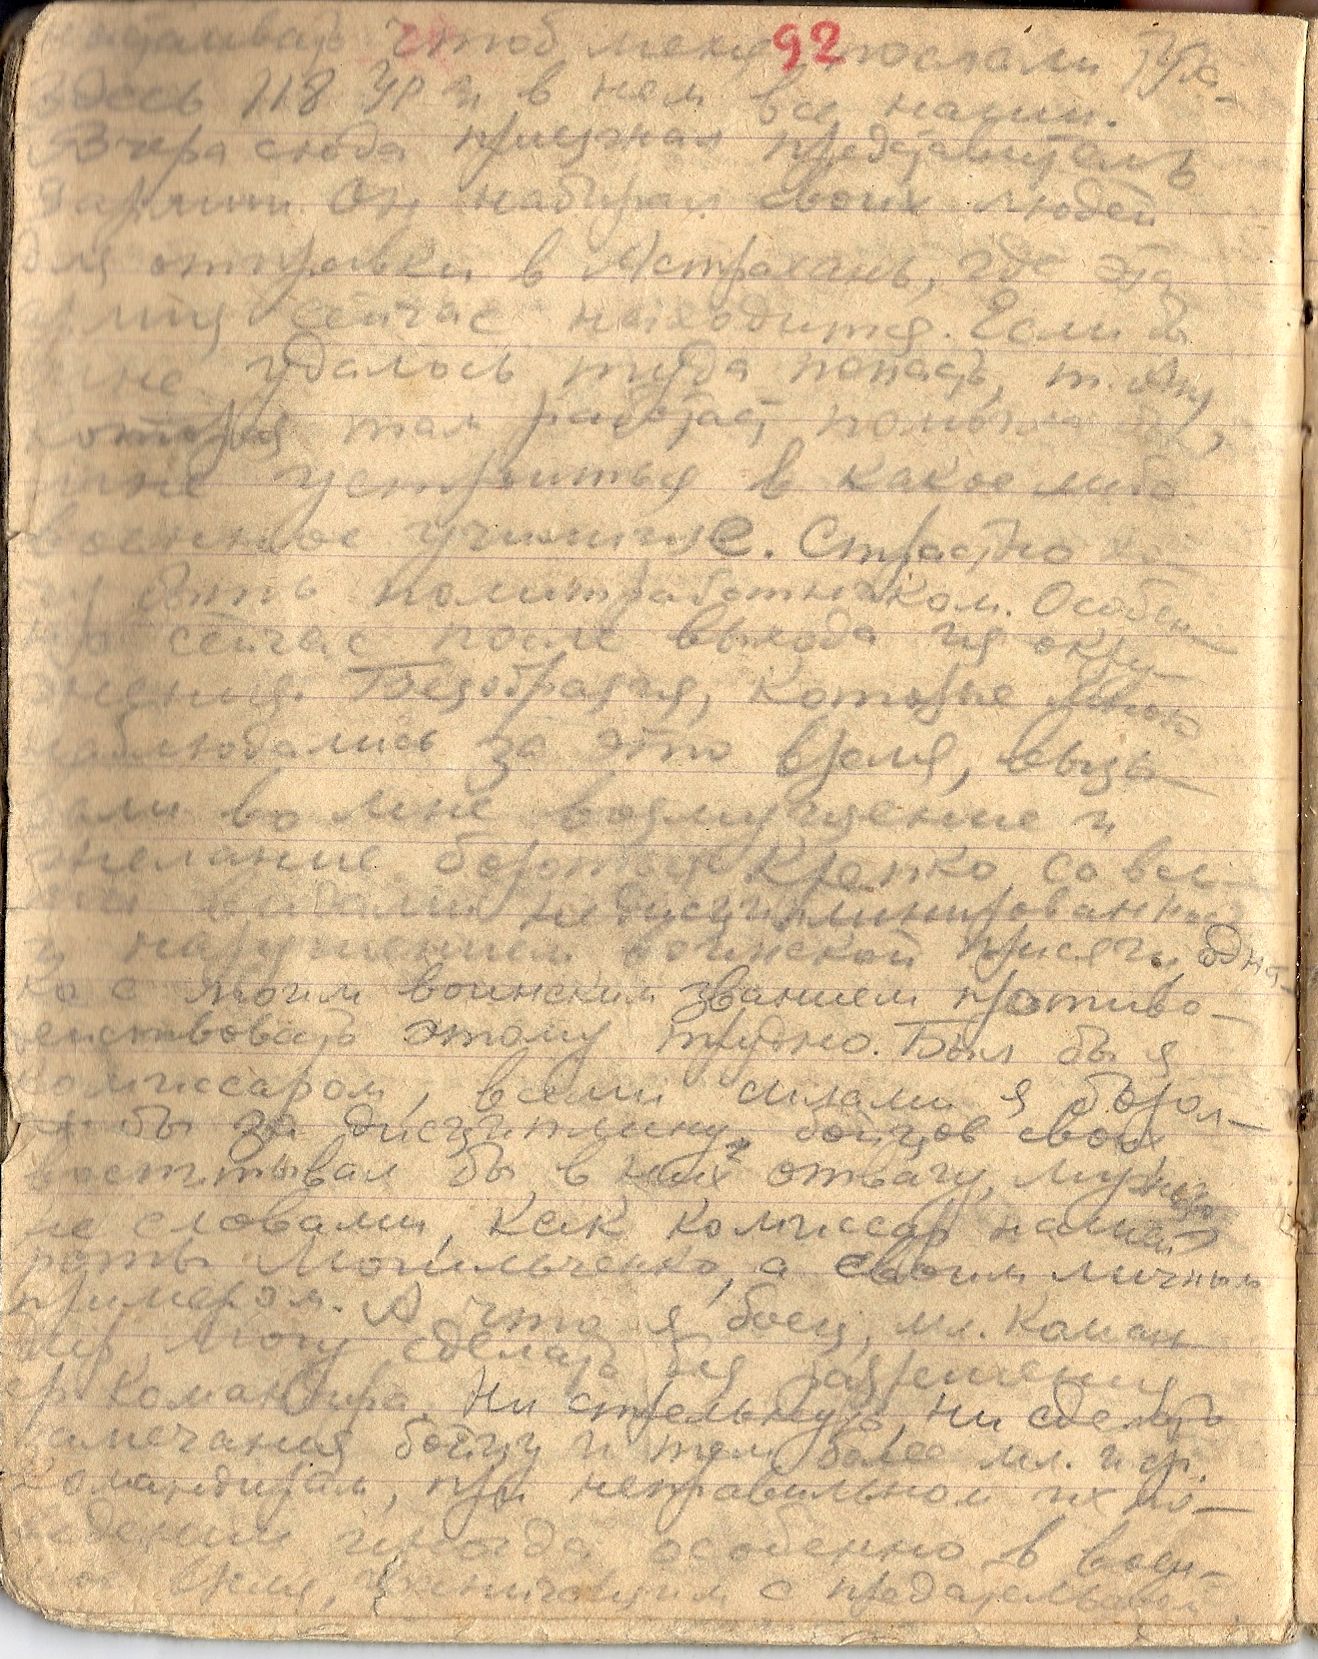 92
настаивать чтоб меня послали туда.
Здесь 118 УР и в нем все наши.
Вчера сюда приезжал представитель
армии. Он набирал своих людей
для отправки в Астрахань, где эта
армия сейчас находится. Если б
мне удалось туда попасть, т.
которая там работает, помогла бы,
мне устроиться в какое либо
военное училище. Страстно хо-
чу быть политработником. Особен-
но сейчас после выхода из окру-
жения. Безобразия, которые мною
наблюдались за это время, вызы-
вали во мне возмущение и
желание бороться крепко со все-
ми видами недисциплинированности
и нарушением воинской присяги, одна-
ко с моим воинским званием противо-
действовать этому трудно. Был бы я
комиссаром, всеми силами я борол-
ся бы за дисциплину, бойцов своих
воспитывал бы, в них отвагу, мужество
не словами, как комиссар нашей
роты Мошльченко, а своим личным
примером. А что я, боец, мл. коман-
дир, могу сделать без разрешения
ср командира. Ни стрельнуть, ни сделать
замечания бойцу и тем более мл. и ср.
командирам, при неправильном их по-
ведении иногда особенно в воен-
ное время, граничащим с предательством